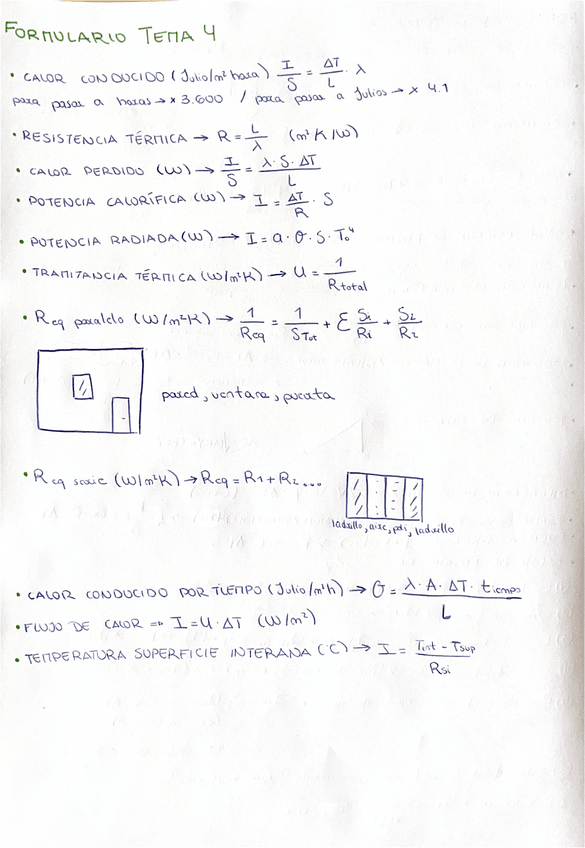 FORMULARIO TEMA 4
• CALOR CONDUCIDO (Julio/m² hora) I/S = ΔT/L · λ
para pasar a horas → x 3.600 / para pasar a Julios → x 4.1
• RESISTENCIA TÉRMICA → R = L/λ (m²K/W)
• CALOR PERDIDO (W) → I/S = λ·S·ΔT/L
• POTENCIA CALORÍFICA (W) → I = ΔT/R · S
• POTENCIA RADIADA (W) → I = a·σ·S·T₀⁴
• TRAMITANCIA TÉRMICA (W/m²K) → U = 1/Rtotal
• Req paralelo (W/m²K) → 1/Req = 1/STot + Σ Si/Ri + S2/R2
pared, ventana, puerta
• Req serie (W/m²K) → Req = R1 + R2 ...
ladrillo, aire, poli, ladrillo
• CALOR CONDUCIDO POR TIEMPO (Julio/m²h) → σ = λ·A·ΔT·tiempo/L
• FLUJO DE CALOR => I = U·ΔT (W/m²)
• TEMPERATURA SUPERFICIE INTERANA (°C) → I = Tint - Tsup/Rsi